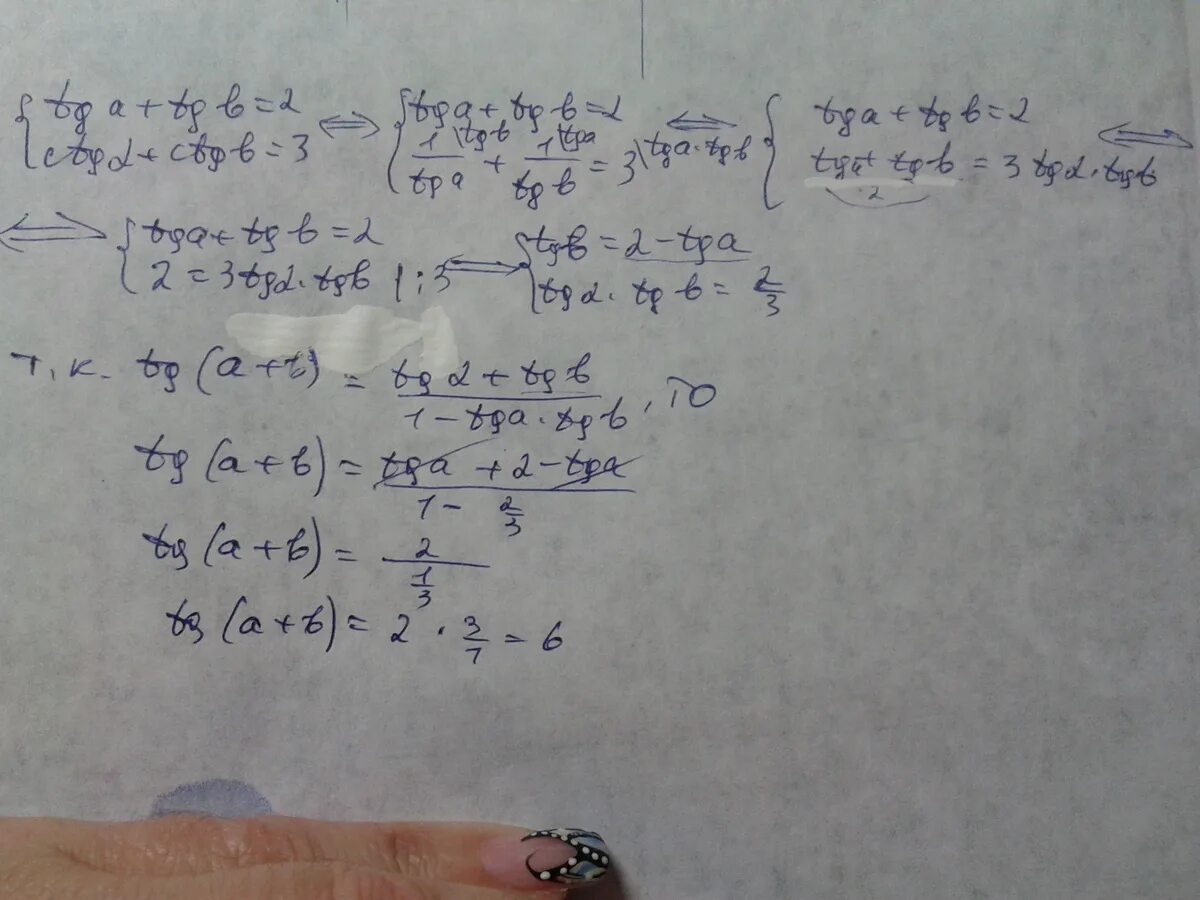 { tg a + tg b = 2 ⇔ { tg a + tg b = 2 ⇔ { tg a + tg b = 2 ⇔
{ ctg α + ctg b = 3 { 1\tg b / tg a + 1\tg a / tg b = 3 \tg a · tg b { tg a + tg b = 3 tg α · tg b
2
⇔ { tg a + tg b = 2 ⇔ { tg b = 2 - tg a
{ 2 = 3 tg α · tg b | : 3 { tg α · tg b = 2/3
т.к. tg (a + b) = (tg α + tg b) / (1 - tg a · tg b), то
tg (a + b) = (tg a + 2 - tg a) / (1 - 2/3)
tg (a + b) = 2 / (1/3)
tg (a + b) = 2 · 3/1 = 6